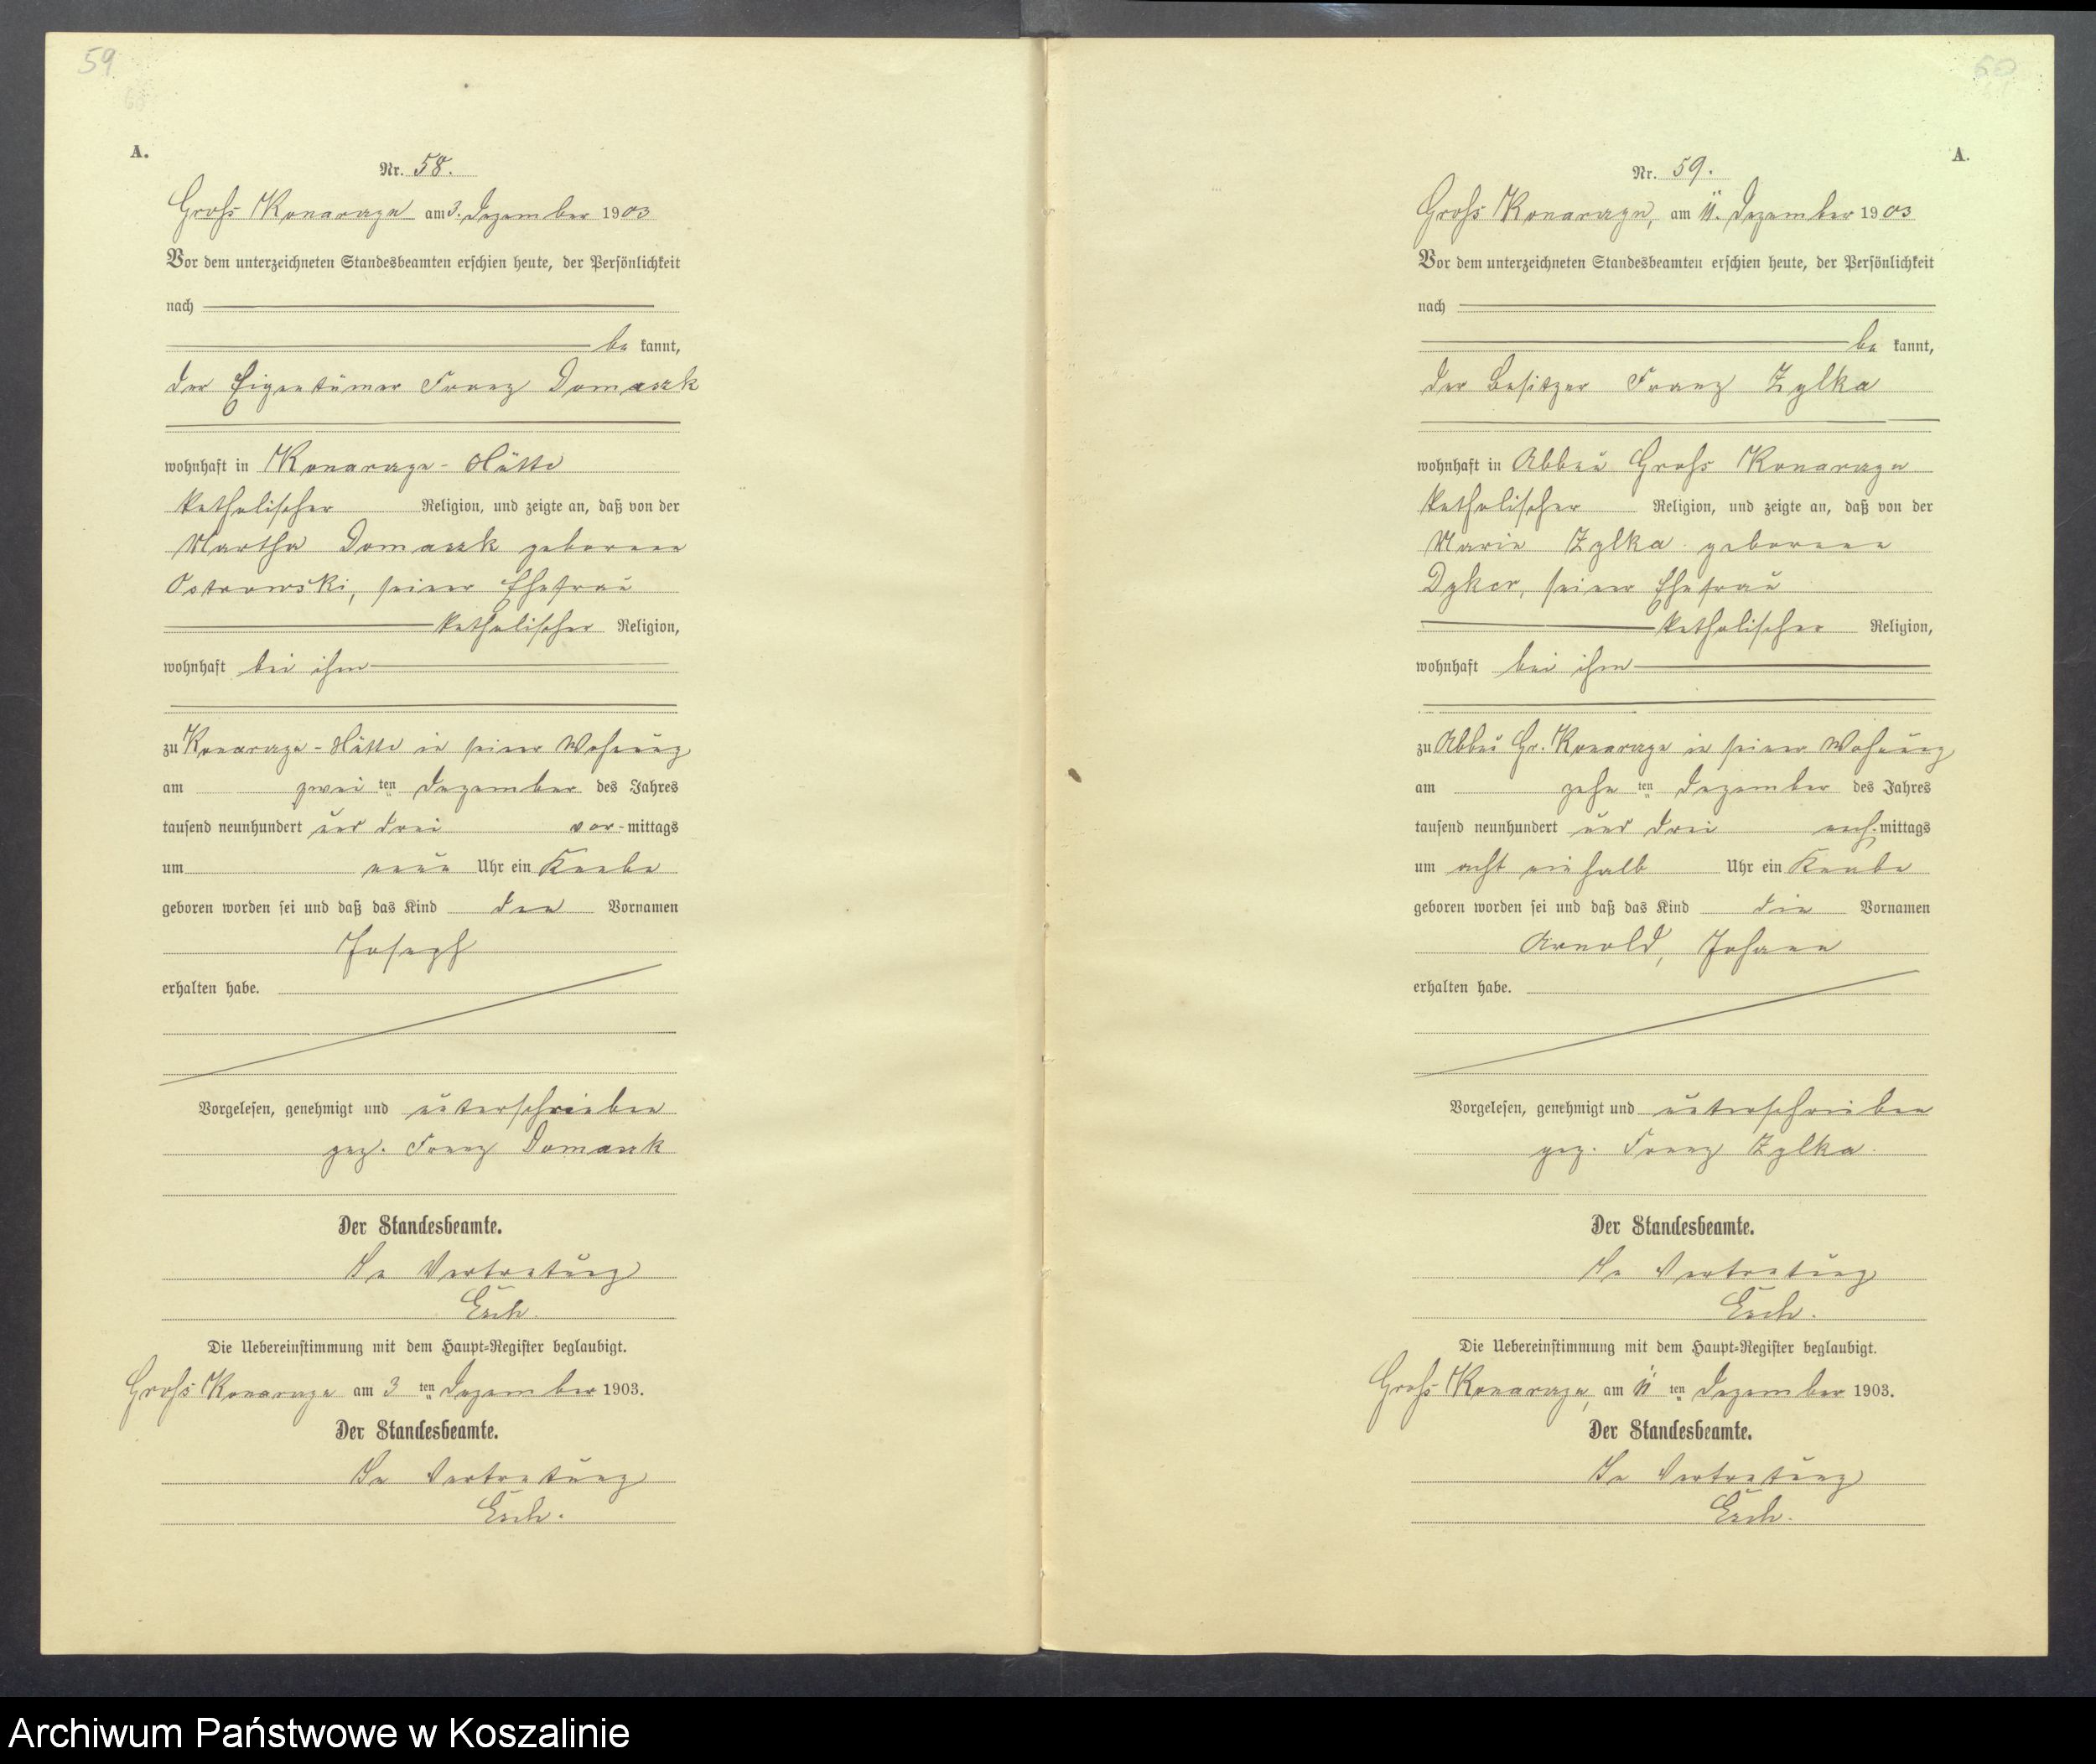 59
A.
Nr. 58.
Groß Konarczyn am 3. Dezember 1903
Vor dem unterzeichneten Standesbeamten erschien heute, der Persönlichkeit
nach
be kannt,
der Eigentümer Franz Domaszk
wohnhaft in Konarczyn-Hütte
katholischer Religion, und zeigte an, daß von der
Martha Domaszk geborenen
Ostrowski, seiner Ehefrau
katholischer Religion,
wohnhaft bei ihm
zu Konarczyn-Hütte in seiner Wohnung
am zwei ten Dezember des Jahres
tausend neunhundert und drei vor-mittags
um neun Uhr ein Knabe
geboren worden sei und daß das Kind den Vornamen
Joseph
erhalten habe.
Vorgelesen, genehmigt und unterschrieben
gez. Franz Domaszk
Der Standesbeamte.
In Vertretung
Esch.
Die Uebereinstimmung mit dem Haupt-Register beglaubigt.
Groß Konarczyn am 3 ten Dezember 1903.
Der Standesbeamte.
In Vertretung
Esch.
60
A.
Nr. 59.
Groß Konarczyn, am 11. Dezember 1903
Vor dem unterzeichneten Standesbeamten erschien heute, der Persönlichkeit
nach
be kannt,
der Besitzer Franz Zylka
wohnhaft in Abbau Groß Konarczyn
katholischer Religion, und zeigte an, daß von der
Marie Zylka geborenen
Dyker, seiner Ehefrau
katholischer Religion,
wohnhaft bei ihm
zu Abbau Gr. Konarczyn in seiner Wohnung
am zehn ten Dezember des Jahres
tausend neunhundert und drei nach-mittags
um acht ein halb Uhr ein Knabe
geboren worden sei und daß das Kind die Vornamen
Arnold, Johann
erhalten habe.
Vorgelesen, genehmigt und unterschrieben
gez. Franz Zylka
Der Standesbeamte.
In Vertretung
Esch.
Die Uebereinstimmung mit dem Haupt-Register beglaubigt.
Groß Konarczyn, am 11 ten Dezember 1903.
Der Standesbeamte.
In Vertretung
Esch.
Archiwum Państwowe w Koszalinie